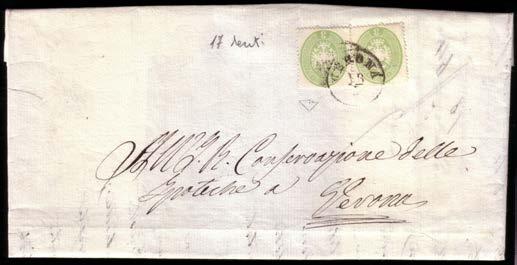 17 centi
VERONA
13
All'I. R. Conservazione delle
Ipoteche a
Verona